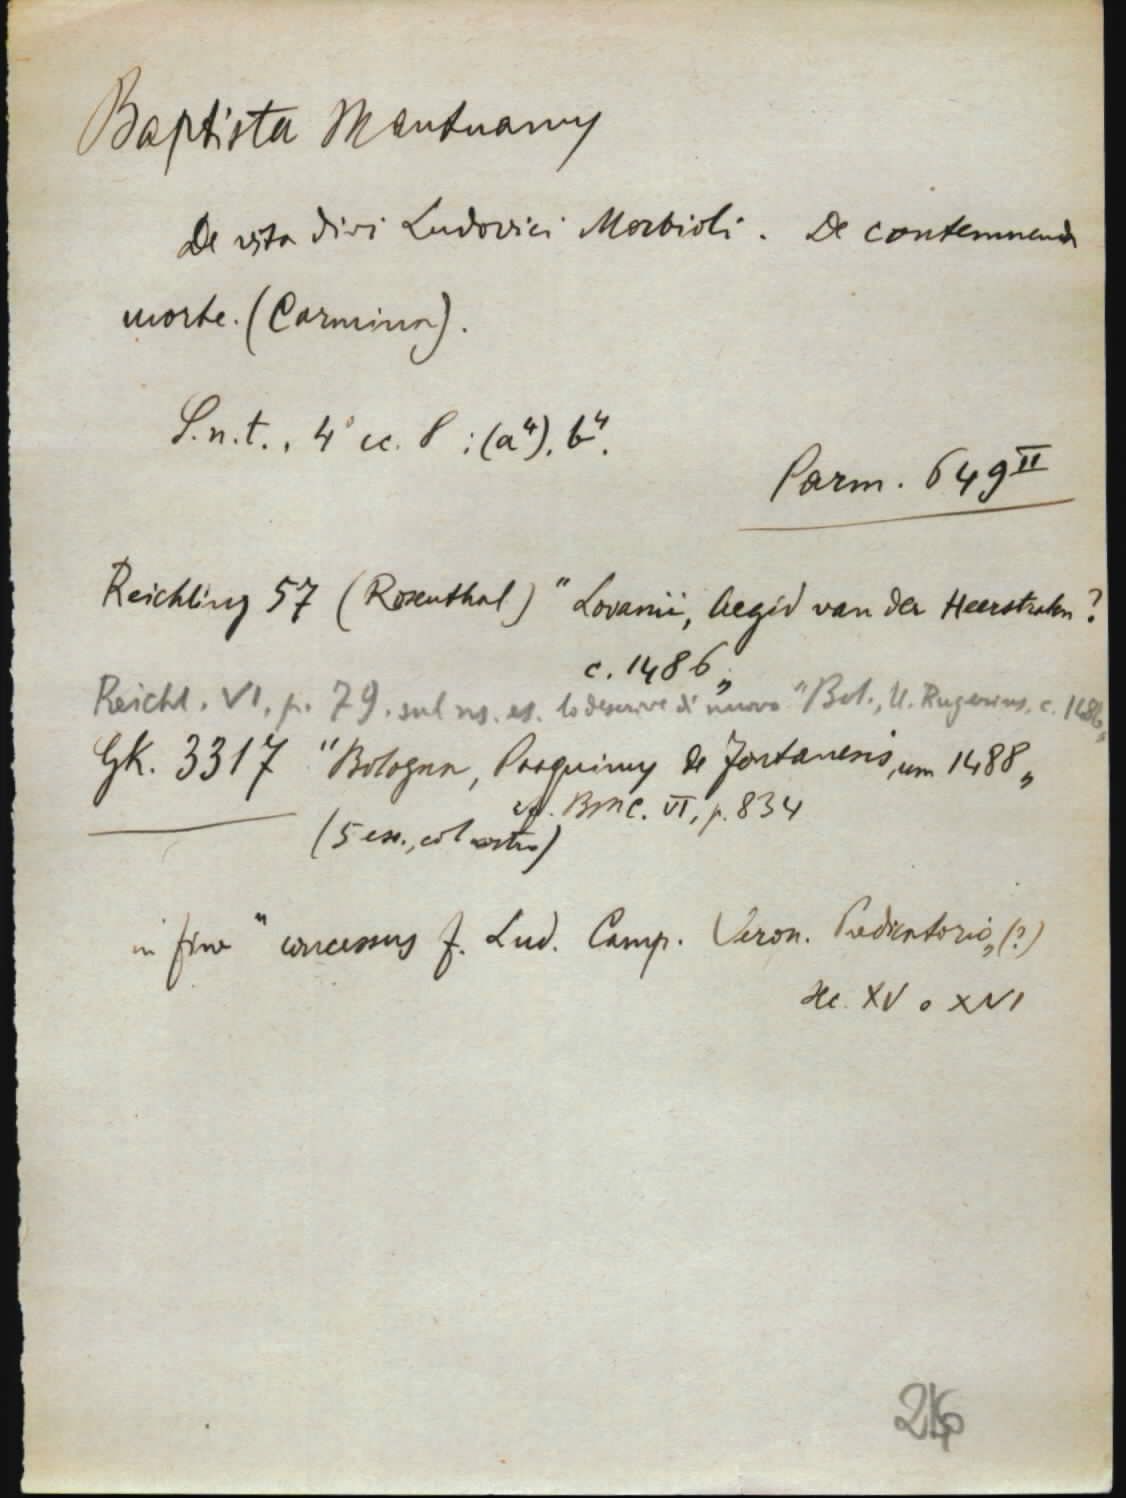 Baptista Mantuanus
De vita divi Ludovici Morbioli. De contemnenda
morte. (Carmina).
S.n.t., 4° cc. 8 : (a⁴), b⁴.
Parm. 649 II
Reichling 57 (Rosenthal) "Lovanii, Aegid van der Heerstraten?
c. 1486"
Reichl. VI, p. 79. sul ns. es. lo descrive di nuovo "Bol., U. Rugerius, c. 1486"
GK. 3317 "Bologna, Pasquinus de Fontanesis, um 1488"
cf. BMC. VI, p. 834
(5 es., col nostro)
in fine "concessus f. Lud. Camp. Veron. Predicatorio" (?)
sec. XV o XVI